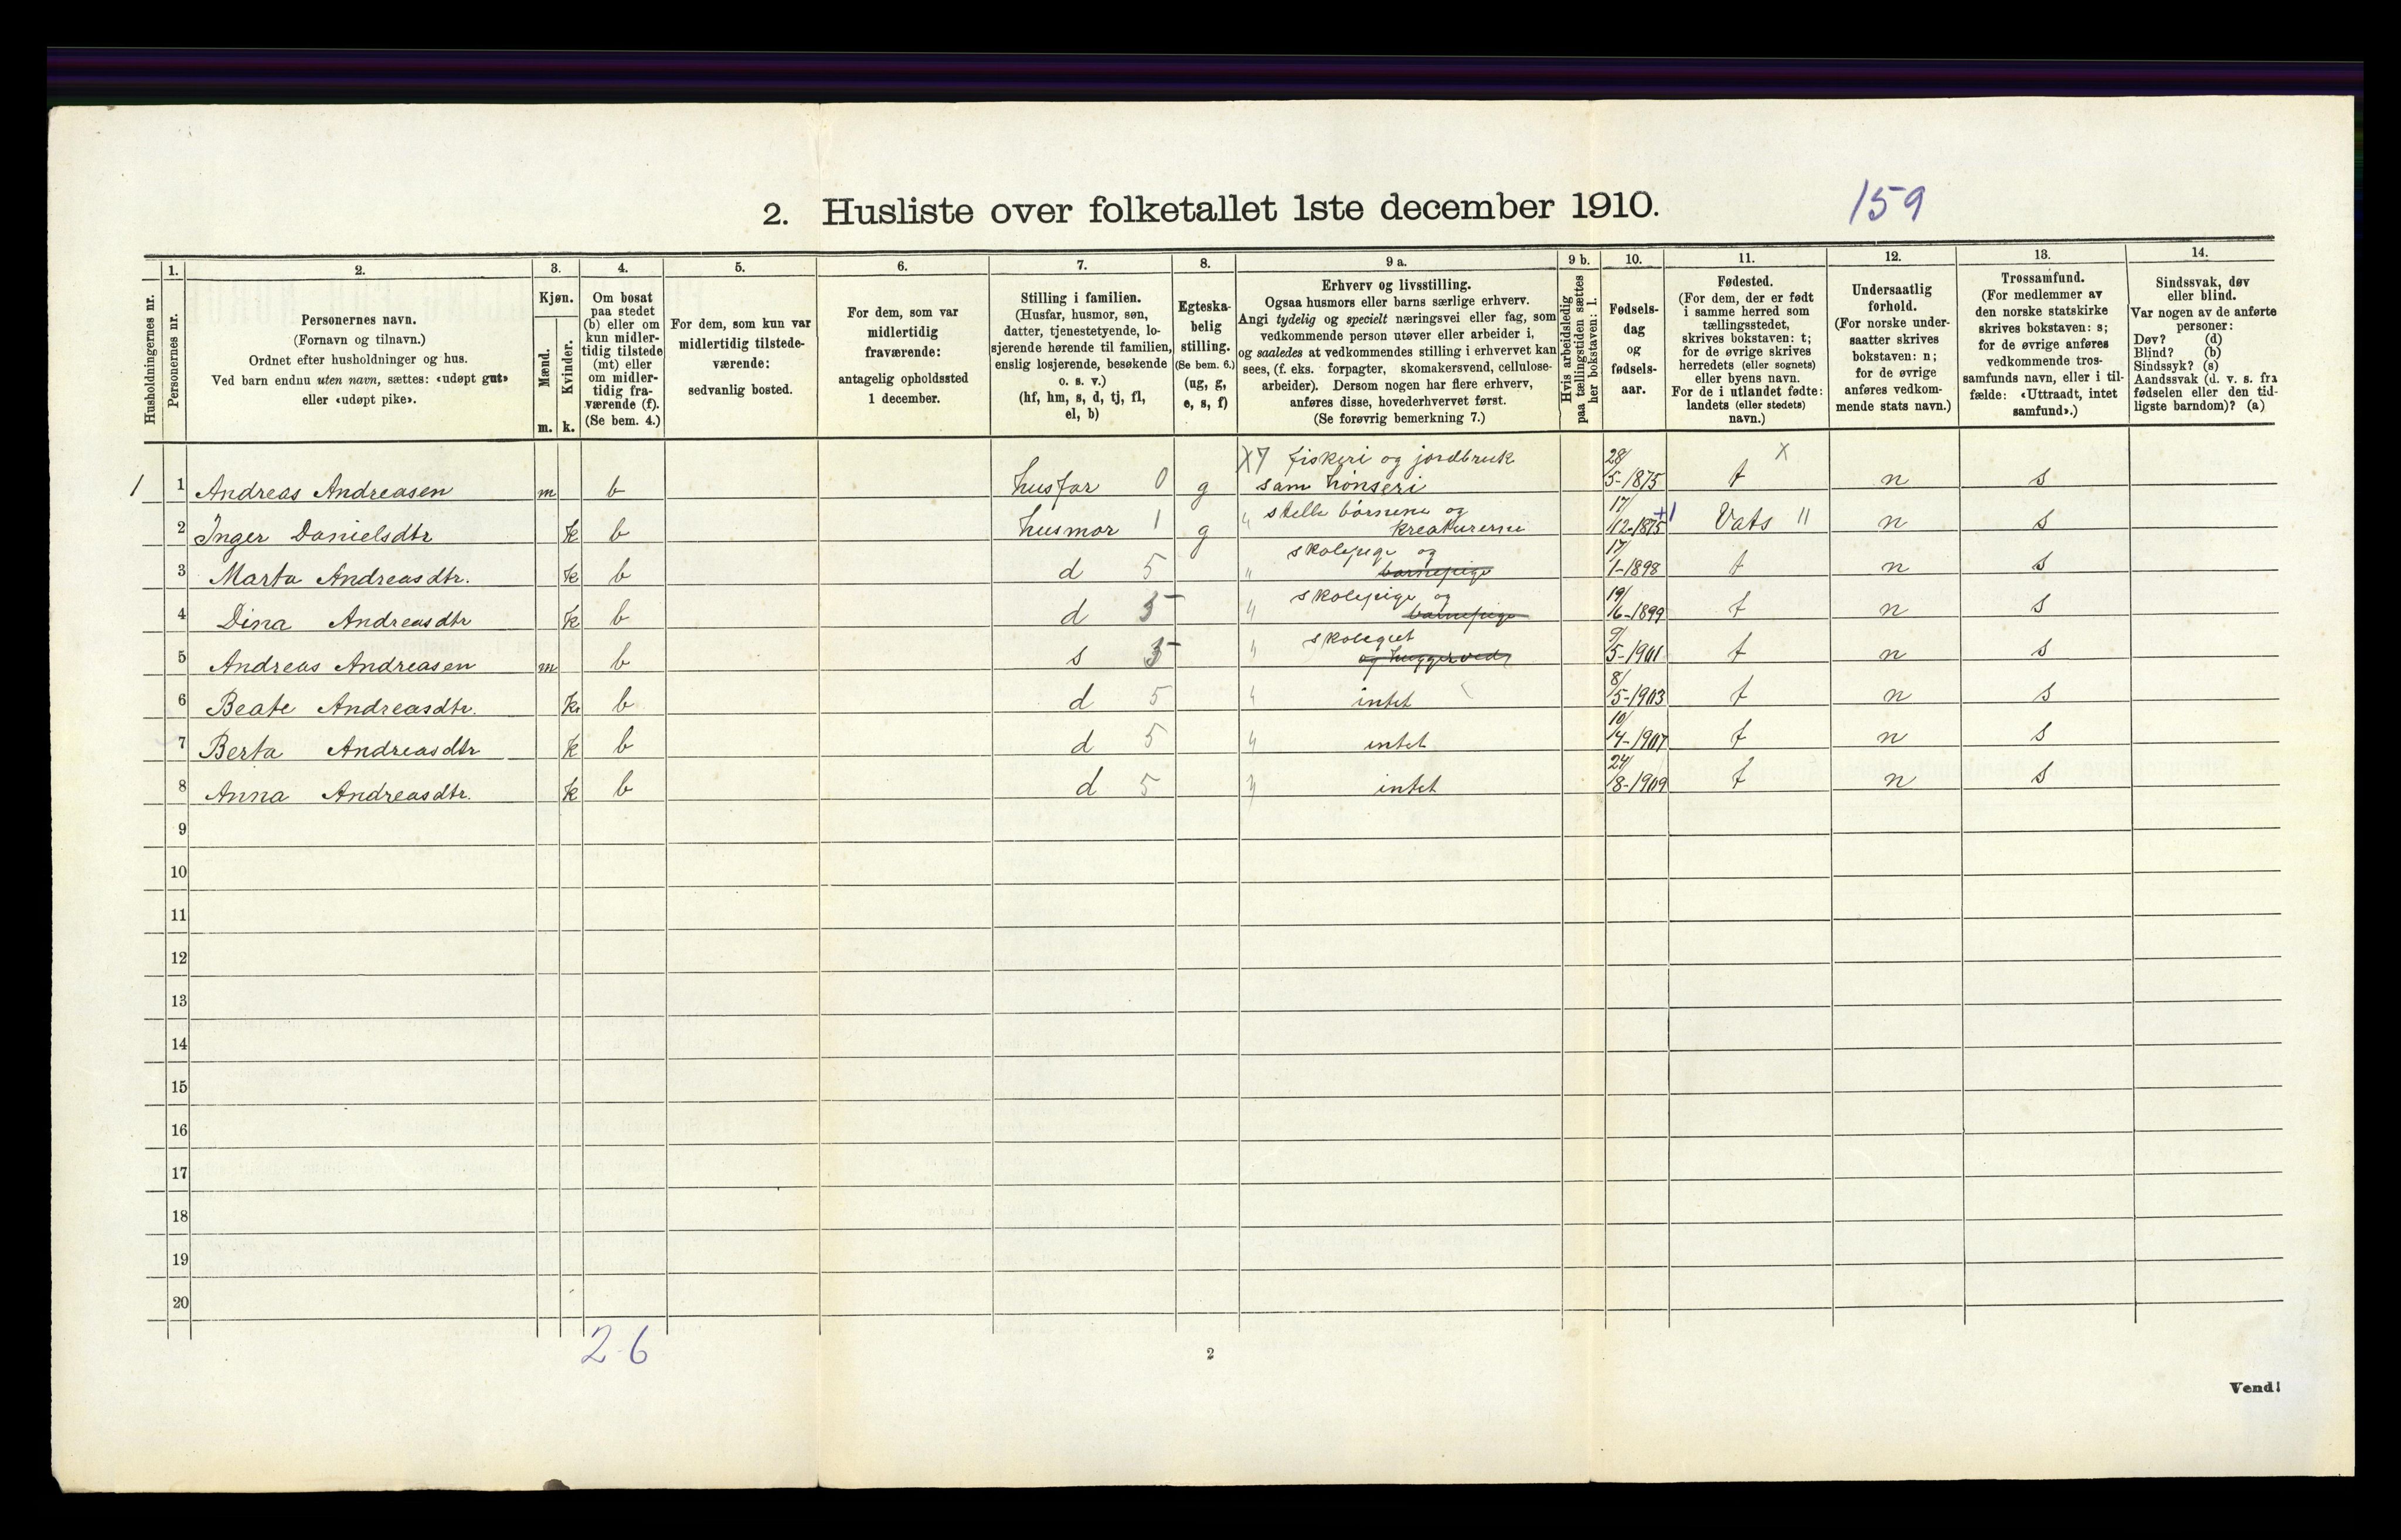 2. Husliste over folketallet 1ste december 1910.
159
Husholdningernes nr.
1.
Personernes nr.
2.
Personernes navn.
(Fornavn og tilnavn.)
Ordnet efter husholdninger og hus.
Ved barn endnu uten navn, sættes: «udøpt gut»
eller «udøpt pike».
3.
Kjøn.
Mænd.
Kvinder.
m. k.
4.
Om bosat
paa stedet
(b) eller om
kun midler-
tidig tilstede
(mt) eller
om midler-
tidig fra-
værende (f).
(Se bem. 4.)
5.
For dem, som kun var
midlertidig tilstede-
værende:
sedvanlig bosted.
6.
For dem, som var
midlertidig
fraværende:
antagelig opholdssted
1 december.
7.
Stilling i familien.
(Husfar, husmor, søn,
datter, tjenestetyende, lo-
sjerende hørende til familien,
enslig losjerende, besøkende
o. s. v.)
(hf, hm, s, d, tj, fl,
el, b)
8.
Egteska-
belig
stilling.
(Se bem. 6.)
(ug, g,
e, s, f)
9 a.
Erhverv og livsstilling.
Ogsaa husmors eller barns særlige erhverv.
Angi tydelig og specielt næringsvei eller fag, som
vedkommende person utøver eller arbeider i,
og saaledes at vedkommendes stilling i erhvervet kan
sees, (f. eks. forpagter, skomakersvend, cellulose-
arbeider). Dersom nogen har flere erhverv,
anføres disse, hovederhvervet først.
(Se forøvrig bemerkning 7.)
9 b.
Hvis arbeidsledig
paa tællingstiden sættes
her bokstaven: l.
10.
Fødsels-
dag
og
fødsels-
aar.
11.
Fødested.
(For dem, der er født
i samme herred som
tællingsstedet,
skrives bokstaven: t;
for de øvrige skrives
herredets (eller sognets)
eller byens navn.
For de i utlandet fødte:
landets (eller stedets)
navn.)
12.
Undersaatlig
forhold.
(For norske under-
saatter skrives
bokstaven: n;
for de øvrige
anføres vedkom-
mende stats navn.)
13.
Trossamfund.
(For medlemmer av
den norske statskirke
skrives bokstaven: s;
for de øvrige anføres
vedkommende tros-
samfunds navn, eller i til-
fælde: «Uttraadt, intet
samfund».)
14.
Sindssvak, døv
eller blind.
Var nogen av de anførte
personer:
Døv? (d)
Blind? (b)
Sindssyk? (s)
Aandssvak (d. v. s. fra
fødselen eller den tid-
ligste barndom)? (a)
X7 fiskeri og jordbruk 28/ X
1 1 Andreas Andreasen m b husfar 0 g sam hønseri 5-1875 t n s
stelle børnene og 17/
2 Inger Danielsdtr k b husmor 1 g " kreaturerne 12-1875 +1 Vats " n s
skolepige og 17/
3 Marta Andreasdtr. k b d 5 " barnepige 1-1898 t n s
skolepige og 19/
4 Dina Andreasdtr k b d 5 " barnepige 6-1899 t n s
skolegut 9/
5 Andreas Andreasen m b s 5 " og hugger ved 5-1901 t n s
8/
6 Beate Andreasdtr. k b d 5 " intet 5-1903 t n s
10/
7 Berta Andreasdtr k b d 5 " intet 4-1907 t n s
24/
8 Anna Andreasdtr. k b d 5 " intet 8-1909 t n s
9
10
11
12
13
14
15
16
17
18
19
20
2-6
2
Vend!